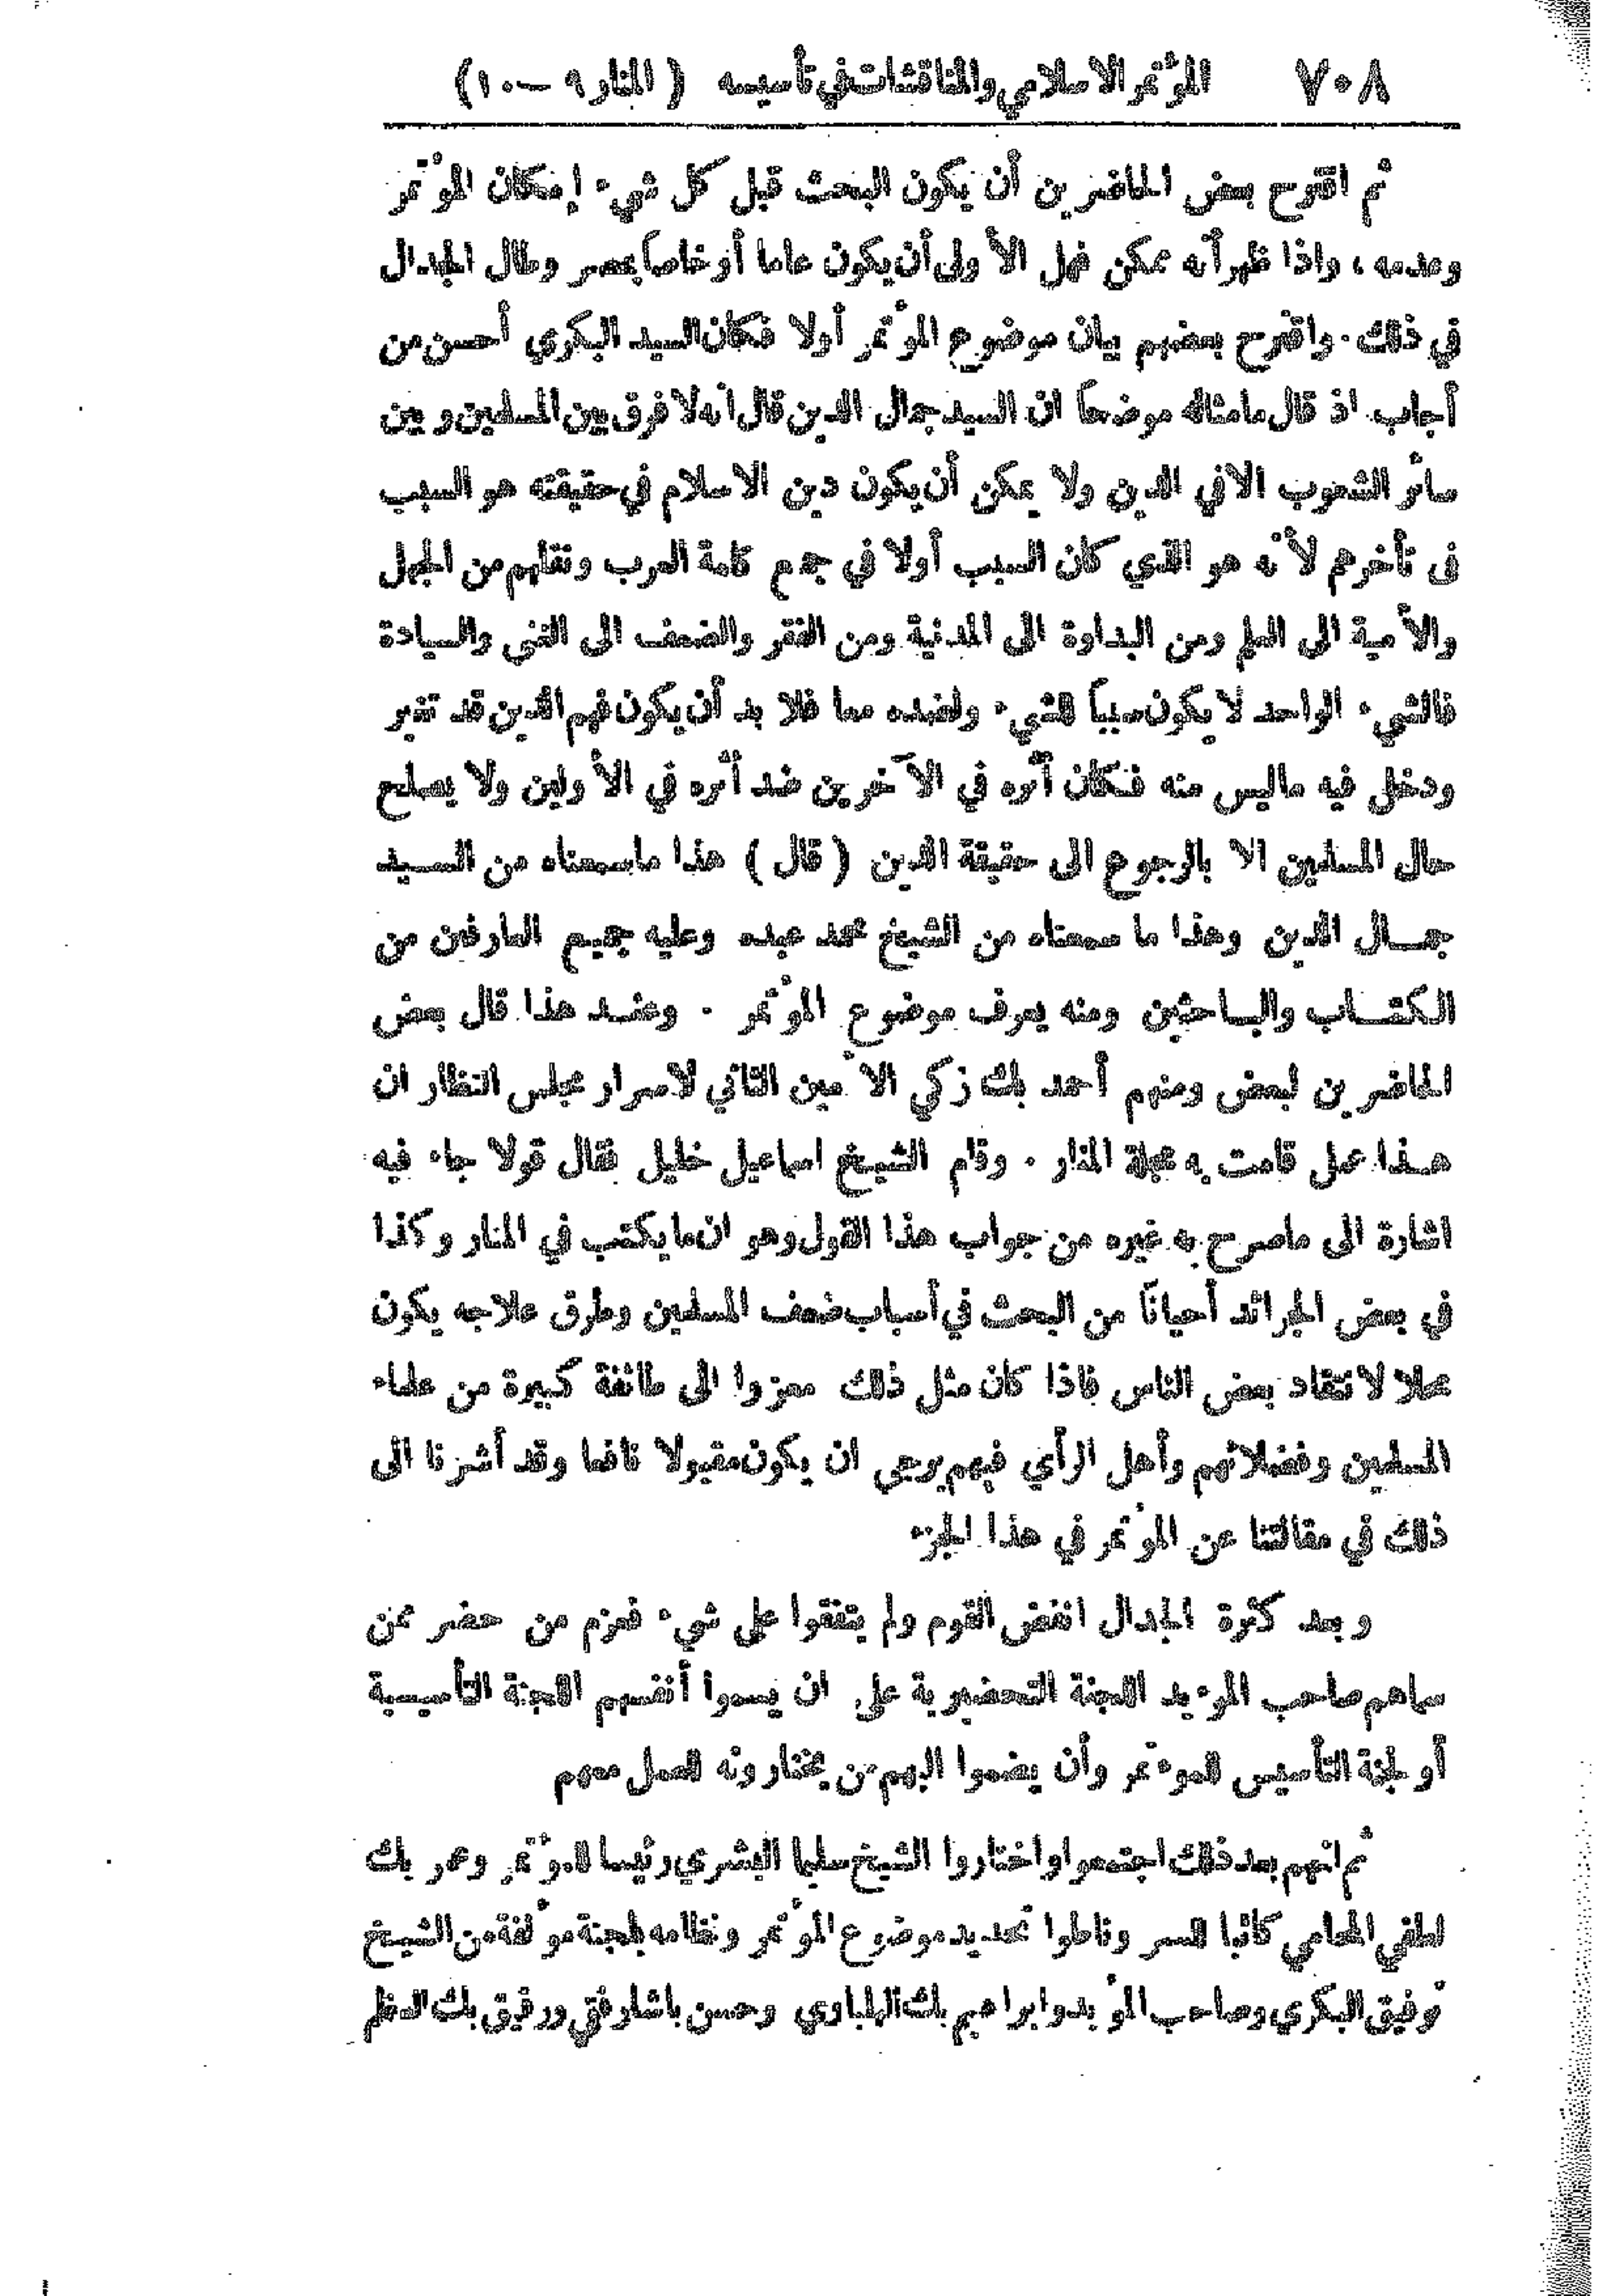 ٧٠٨ المؤتمر الاسلامي والمناقشات في تأسيسه (المنار ٩ – ١٠)
ثم اقترح بعض الحاضرين أن يكون البحث قبل كل شيء إمكان المؤتمر
وعدمه ، واذا ظهر أنه ممكن فهل الأولى أن يكون عاما أو خاصاً بمصر وطال الجدال
في ذلك . واقترح بعضهم بيان موضوع المؤتمر أولا فكان السيد البكري أحسن من
أجاب اذ قال ما مثاله موضحاً ان السيد جمال الدين قال انه لا فرق بين المسلمين وبين
سائر الشعوب الا في الدين ولا يمكن أن يكون دين الاسلام في حقيقته هو السبب
في تأخرهم لأنه هو الذي كان السبب أولا في جمع كلمة العرب ونقلهم من الجهل
والأمية الى العلم ومن البداوة الى المدنية ومن الفقر والضعف الى الغنى والسيادة
فالشيء الواحد لا يكون سبباً للشيء ولضده معا فلا بد أن يكون فهم الدين قد تغير
ودخل فيه ماليس منه فكان أثره في الآخرين ضد أثره في الأولين ولا يصلح
حال المسلمين الا بالرجوع الى حقيقة الدين (قال) هذا ما سمعناه من السيد
جمال الدين وهذا ما سمعناه من الشيخ محمد عبده وعليه جميع العارفين من
الكتاب والباحثين ومنه يعرف موضوع المؤتمر . وعند هذا قال بعض
الحاضرين لبعض ومنهم أحمد بك زكي الأمين الثاني لاسرار مجلس النظار ان
هذا عمل قامت به مجلة المنار . وقام الشيخ اسماعيل خليل فقال قولا جاء فيه
اشارة الى ماصرح به غيره من جواب هذا القول وهو ان ما يكتب في المنار وكذا
في بعض الجرائد أحياناً من البحث في أسباب ضعف المسلمين وطرق علاجه يكون
محلا لانتقاد بعض الناس فاذا كان مثل ذلك معزوا الى طائفة كبيرة من علماء
المسلمين وفضلائهم وأهل الرأي فيهم يرجى ان يكون مقبولا نافعا وقد أشرنا الى
ذلك في مقالتنا عن المؤتمر في هذا الجزء
وبعد كثرة الجدال انفض القوم ولم يتفقوا على شيء فعزم من حضر ممن
سماهم صاحب المؤيد اللجنة التحضيرية على ان يسموا أنفسهم اللجنة التأسيسية
أو لجنة التأسيس للمؤتمر وأن يضموا اليهم من يختارونه للعمل معهم
ثم انهم بعد ذلك اجتمعوا واختاروا الشيخ سليما البشري رئيسا للمؤتمر وعمر بك
لطفي المحامي كاتبا للسر وناطوا تحديد موضوع المؤتمر ونظامه بلجنة مؤلفة من الشيخ
توفيق البكري وصاحب المؤيد وابراهيم بك الهلباوي وحسن باشا رفقي ورفيق بك العظم